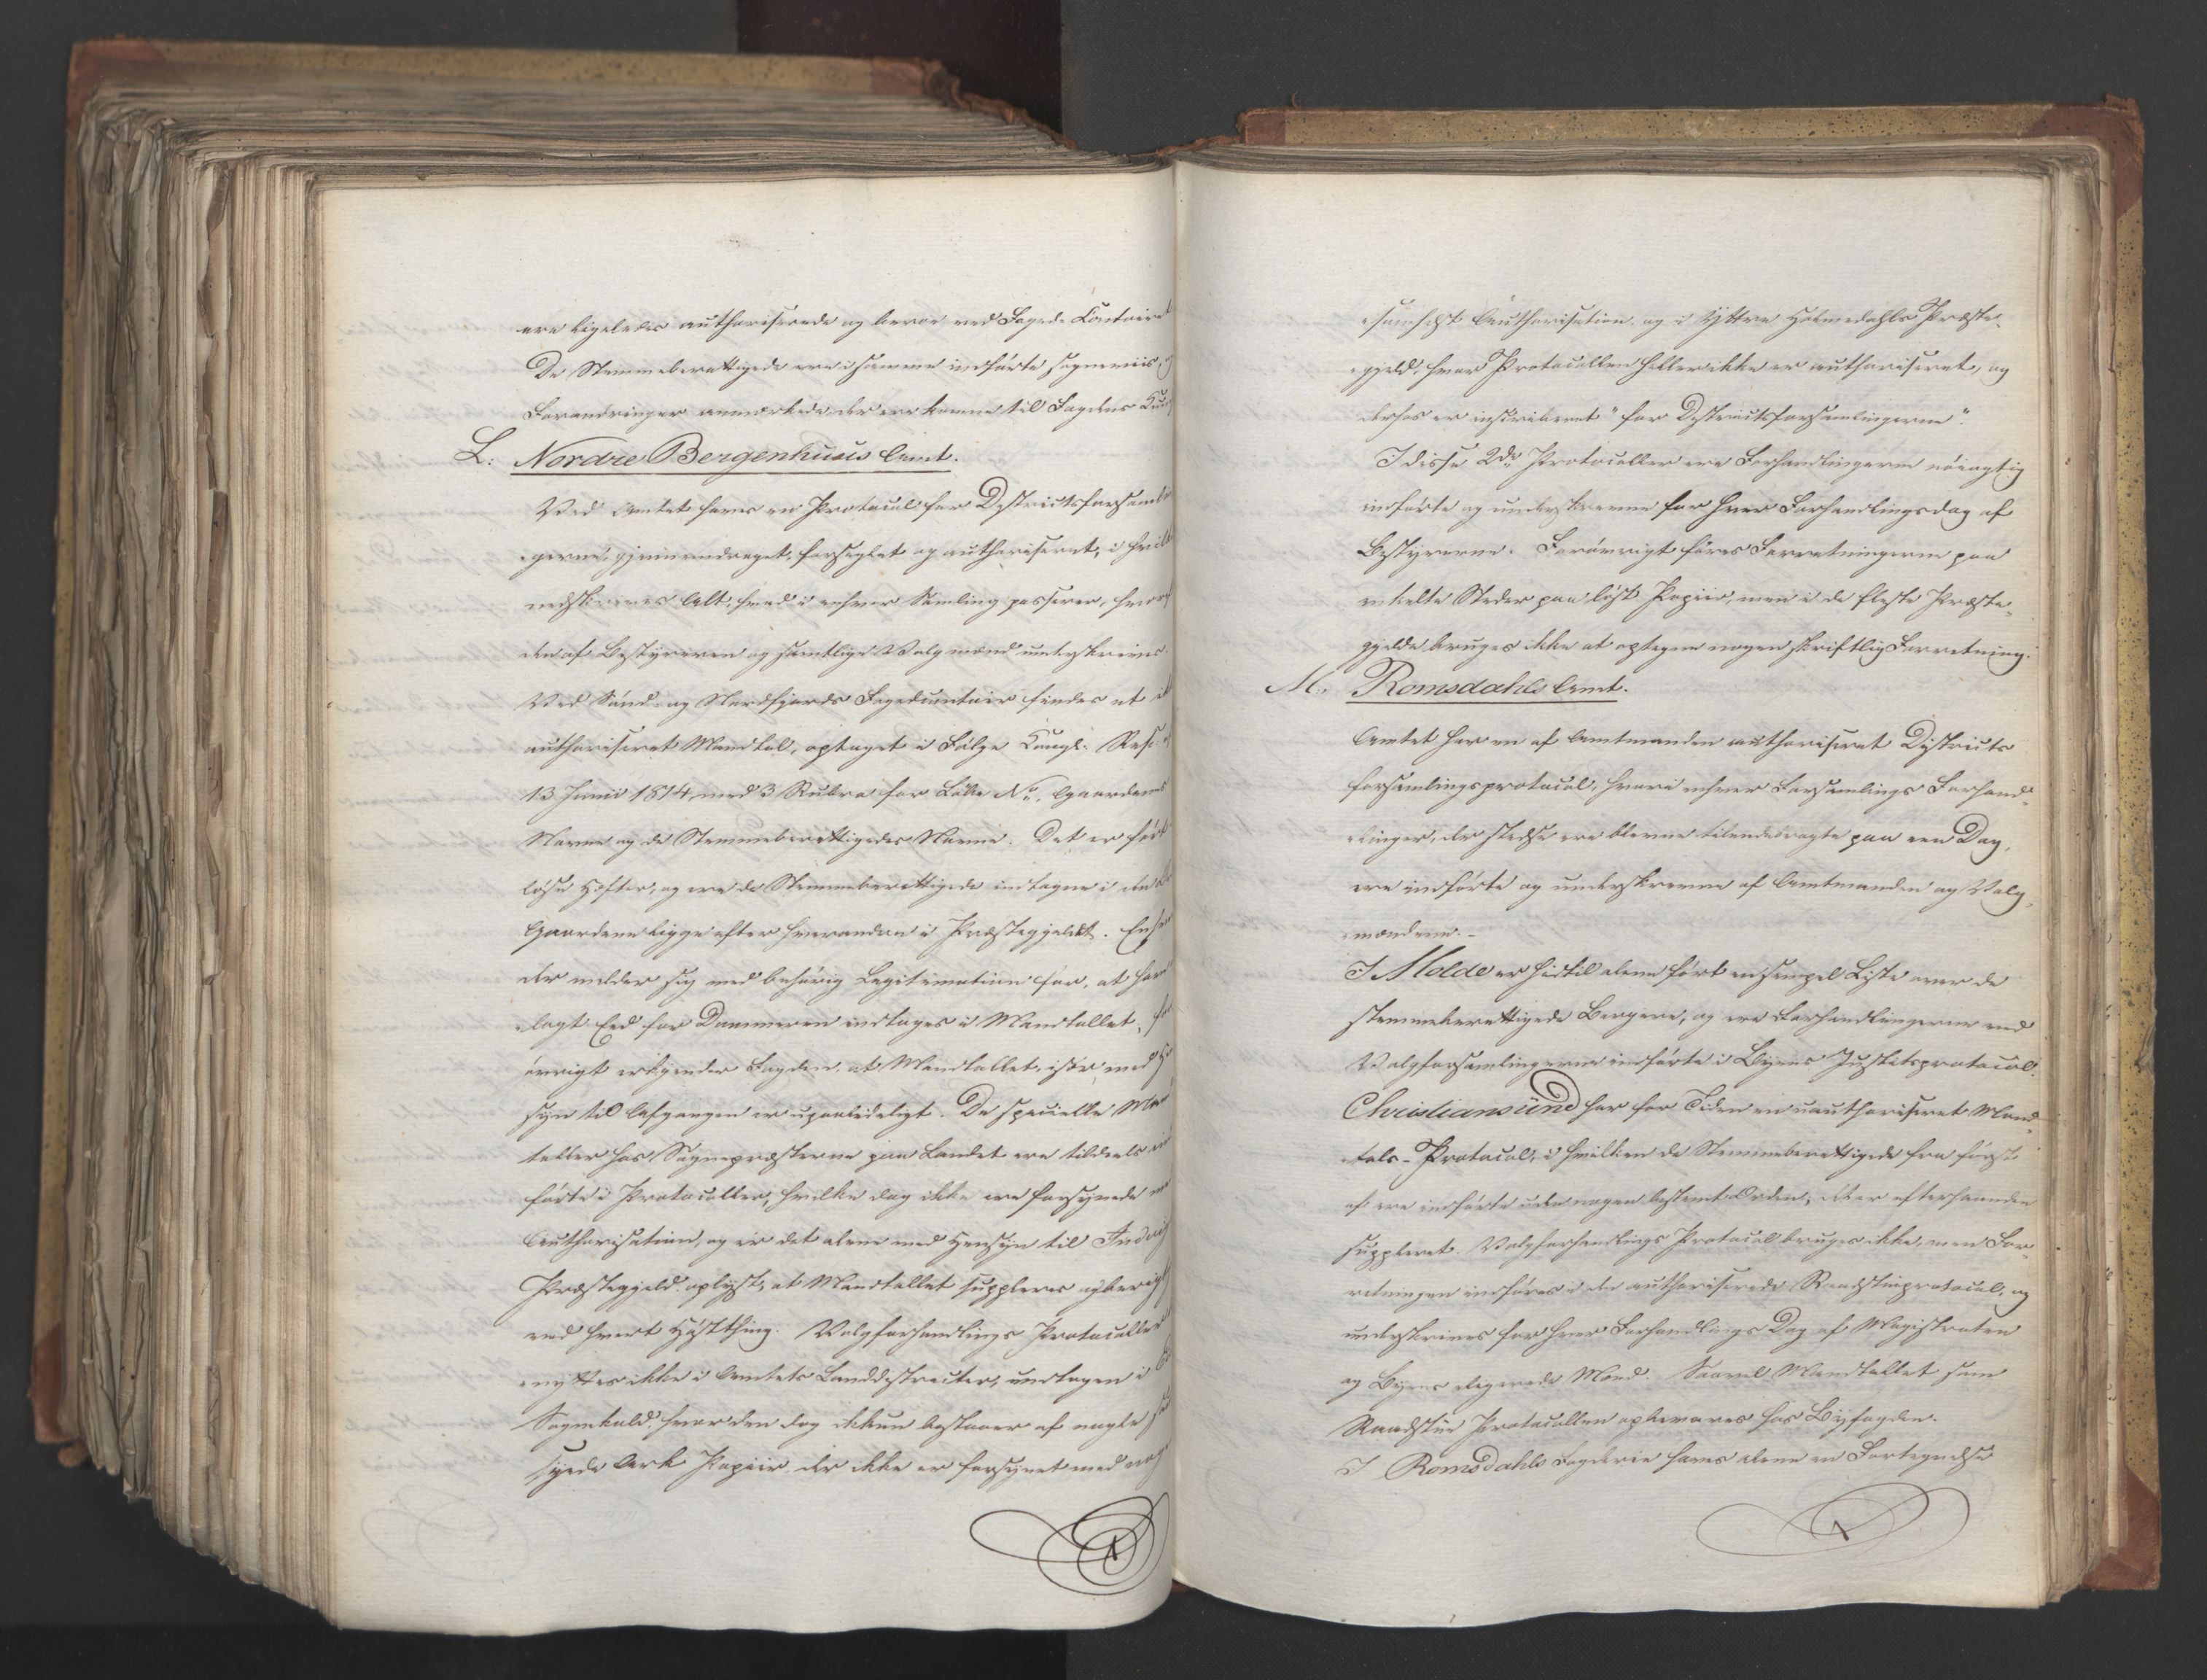 ere ligeledes authoriserede og beroe ved Foged-Contoiret
De Stemmeberettigede ere i samme indførte sogneviis, og
Forandringer anmærkede der ere komne til Fogdens Kund
L: Nordre Bergenhuus Amt.
Ved Amtet haves en Protocol for Districtsforsamlin
gerne, gjennemdraget, forseglet og authoriseret, i hvilk
nedskrives Alt, hvad i enhver Samling passerer, hvor
den af Bestyreren og samtlige Valgmænd underskrives.
Ved Sønd- og Nordfjords Fogedcontoir findes et
authoriseret Mandtal, optaget i Følge Kongl. Resc.
13 Junii 1814 med 3 Rubra for Løbe No., Gaardenes
Navne og de Stemmeberettigedes Navne. Det er ført
løse Hefter, og ere de Stemmeberettigede indtagne i den
Gaardene ligge efter hverandre i Præstegjeldet. Enh
der melder sig med behørig Legitimation for, at have
lagt Eed for Dommeren indtages i Mandtallet, for
øvrigt erkjender Fogden, at Mandtallet, især med He
syn til Afgangen er upaalideligt. De specielle Man
taller hos Sognepræsterne paa Landet ere tildeels ind
førte i Protocoller, hvilke dog ikke ere forsynede med
Authorisation, og er det alene med Hensyn til Indvig
Præstegjeld oplyst, at Mandtallet suppleres og berigt
ved hvert Høstthing. Valgforhandlings Protocoller
nyttes ikke i Amtets Landdistricter, undtagen i
Sognekald, hvor den dog ikkun bestaaer af nogle
syede Ark Papiir, der ikke er forsynet med nog
somhelst Authorisation, og i Yttre Holmedahls Præste-
gjeld, hvor Protocollen heller ikke er authoriseret, og
derhos er inscriberet "for Districtsforsamlingerne".
I disse 2de Protocoller ere Forhandlingerne nøiagtig
indførte og underskrevne for hver Forhandlingsdag af
Bestyrerne. Forøvrigt føres Forretningerne paa
enkelte Steder paa løst Papiir, men i de fleste Præste-
gjelde bruges ikke at optegne nogen skriftlig Forretning.
M: Romsdahls Amt.
Amtet har en af Amtmanden authoriseret Districts
forsamlingsprotocol, hvori enhver Forsamlings Forhand-
linger, der stedse ere blevne tilendebragte paa een Dag,
ere indførte og underskrevne af Amtmanden og Valg-
mændene.-
I Molde er hidtil alene ført en simpel Liste over de
stemmeberettigede Borgere, og ere Forhandlingerne ved
Valgforsamlingerne indførte i Byens Justitsprotocol.
Christiansund har for Tiden en uauthoriseret Mand-
tals-Protocol, i hvilken de Stemmeberettigede fra først
af ere indførte uden nogen bestemt Orden; det er efterhaanden
suppleret. Valgforhandlings Protocol bruges ikke, men For-
retningen indføres i den authoriserede Raadstueprotocol, og
underskrives for hver Forhandlings Dag af Magistraten
og Byens eligerede Mænd. Saavel Mandtallet som
Raadstue Protocollen opbevares hos Byfogden.
I Romsdahls Fogderie haves alene en Fortegnelse